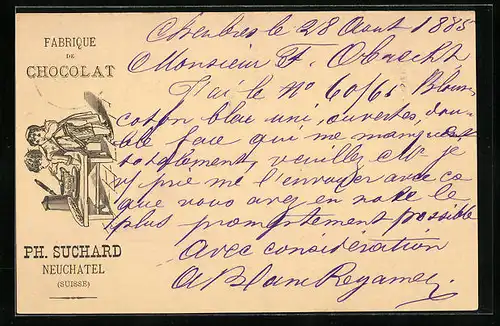 FABRIQUE
DE
CHOCOLAT
PH. SUCHARD
NEUCHATEL
(SUISSE)
Chexbres le 28 Aout 1885
Monsieur F. Obrecht
J'ai le No 60/65 Blous
coton bleu uni, ouvertes, dou-
ble face qui me manquent
totalement, veuillez Mr je
v/ prie me l'envoyer avec ce
que vous avez en note le
plus promptement possible
Avec considération
A Blanc Regamey